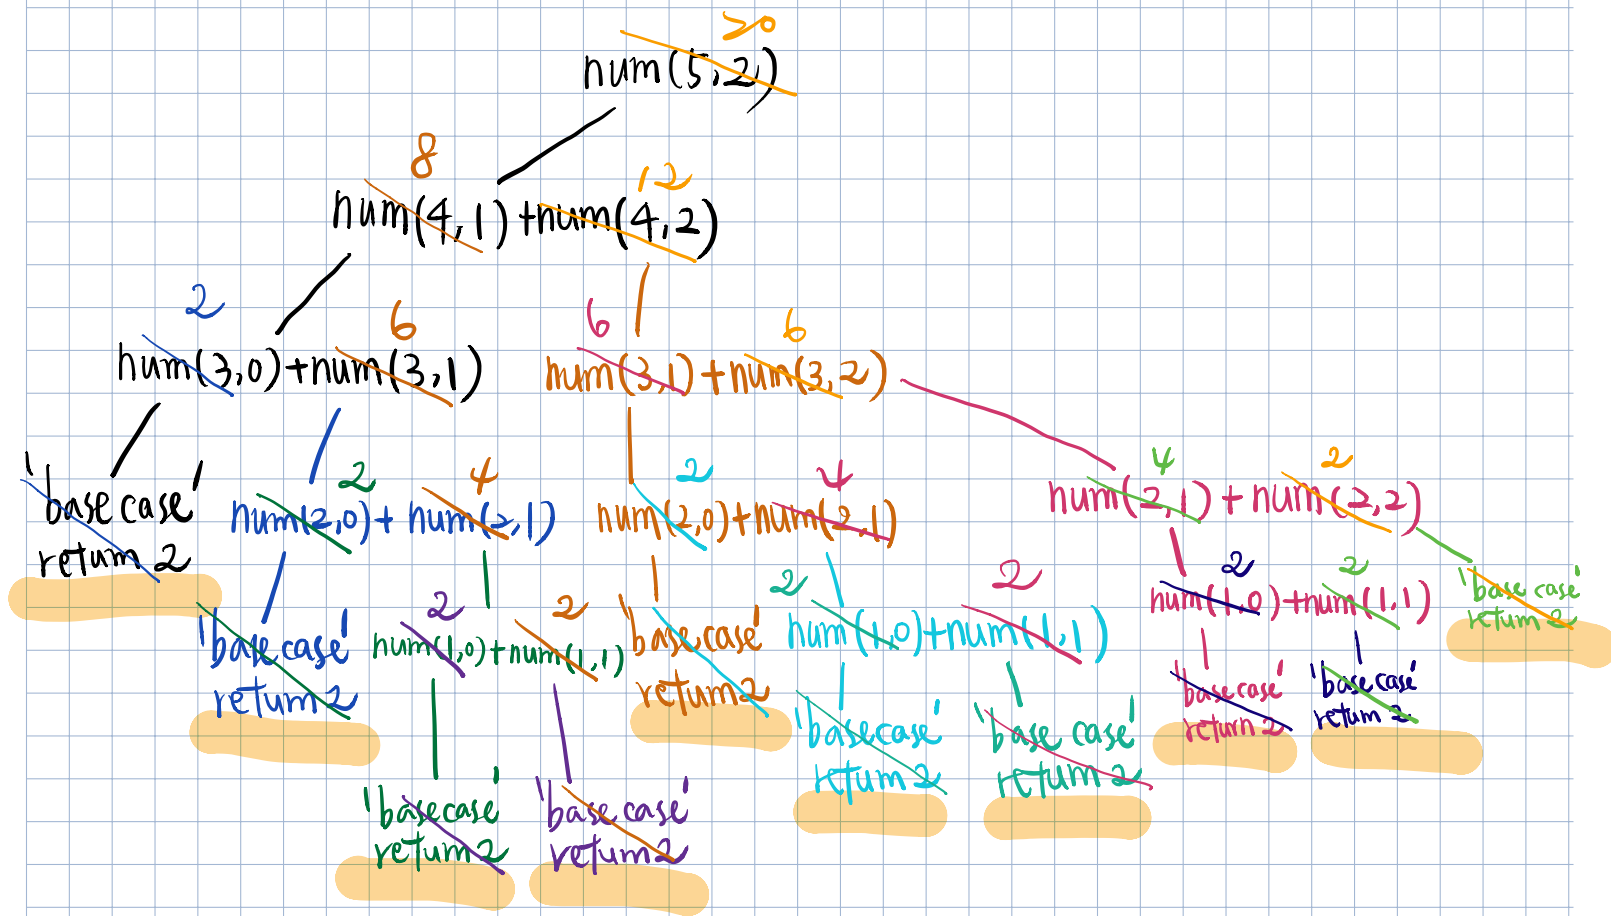 20
num(5,2)
8
12
num(4,1)+num(4,2)
2
6
6
6
num(3,0)+num(3,1)
num(3,1)+num(3,2)
'base case'
return 2
2
4
num(2,0)+num(2,1)
2
4
num(2,0)+num(2,1)
4
2
num(2,1)+num(2,2)
'base case'
return 2
2
2
num(1,0)+num(1,1)
'base case'
return 2
2
2
num(1,0)+num(1,1)
2
2
num(1,0)+num(1,1)
'base case'
return 2
'base case'
return 2
'base case'
return 2
'base case'
return 2
'base case'
return 2
'base case'
return 2
'base case'
return 2
'base case'
return 2